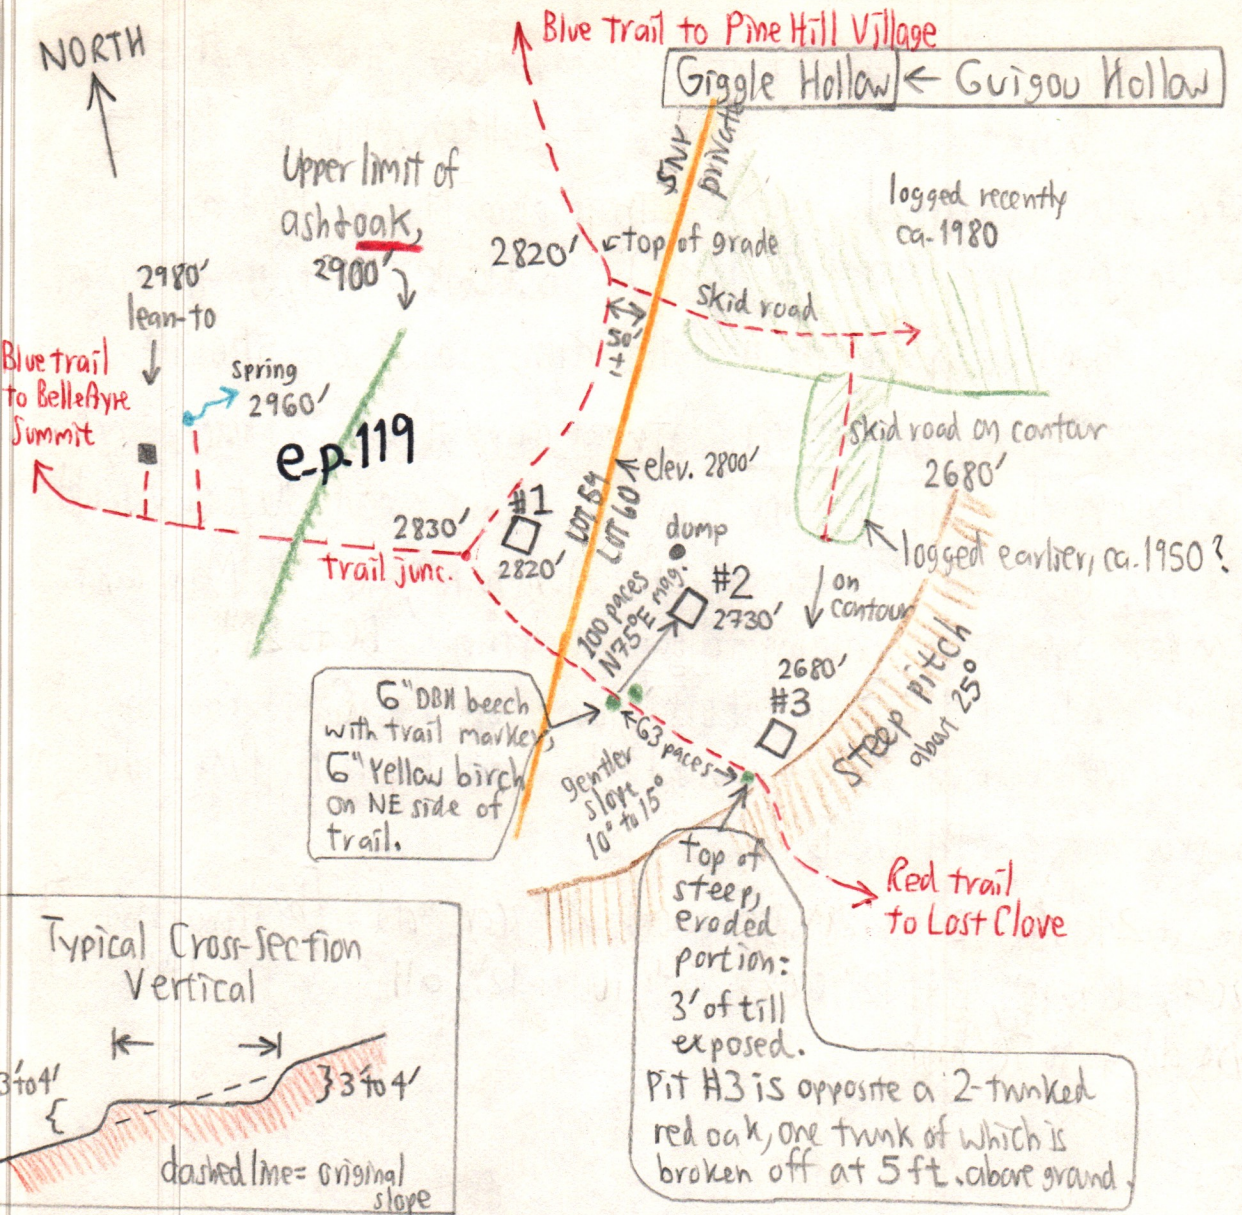 NORTH
Blue Trail to Pine Hill Village
Giggle Hollow ← Guigou Hollow
SNY
private
Upper limit of
ash+oak,
2900'
logged recently
ca. 1980
2820'
top of grade
skid road
50'
±
2980'
lean-to
Blue trail
to BelleAyre
Summit
spring
2960'
e.p.119
skid road on contour
2680'
elev. 2800'
LOT 59
LOT 60
#1
2820'
2830'
trail junc.
dump
logged earlier, ca. 1950?
#2
2730'
100 paces
N75°E mag.
on
contour
2680'
#3
steep pitch
about 25°
6" DBH beech
with trail marker,
6" Yellow birch
on NE side of
trail.
63 paces
gentler
slope
10° to 15°
Top of
steep,
eroded
portion:
3' of till
exposed.
Pit #3 is opposite a 2-trunked
red oak, one trunk of which is
broken off at 5 ft. above ground.
Red trail
to Lost Clove
Typical Cross-Section
Vertical
3' to 4'
3' to 4'
dashed line = original
slope